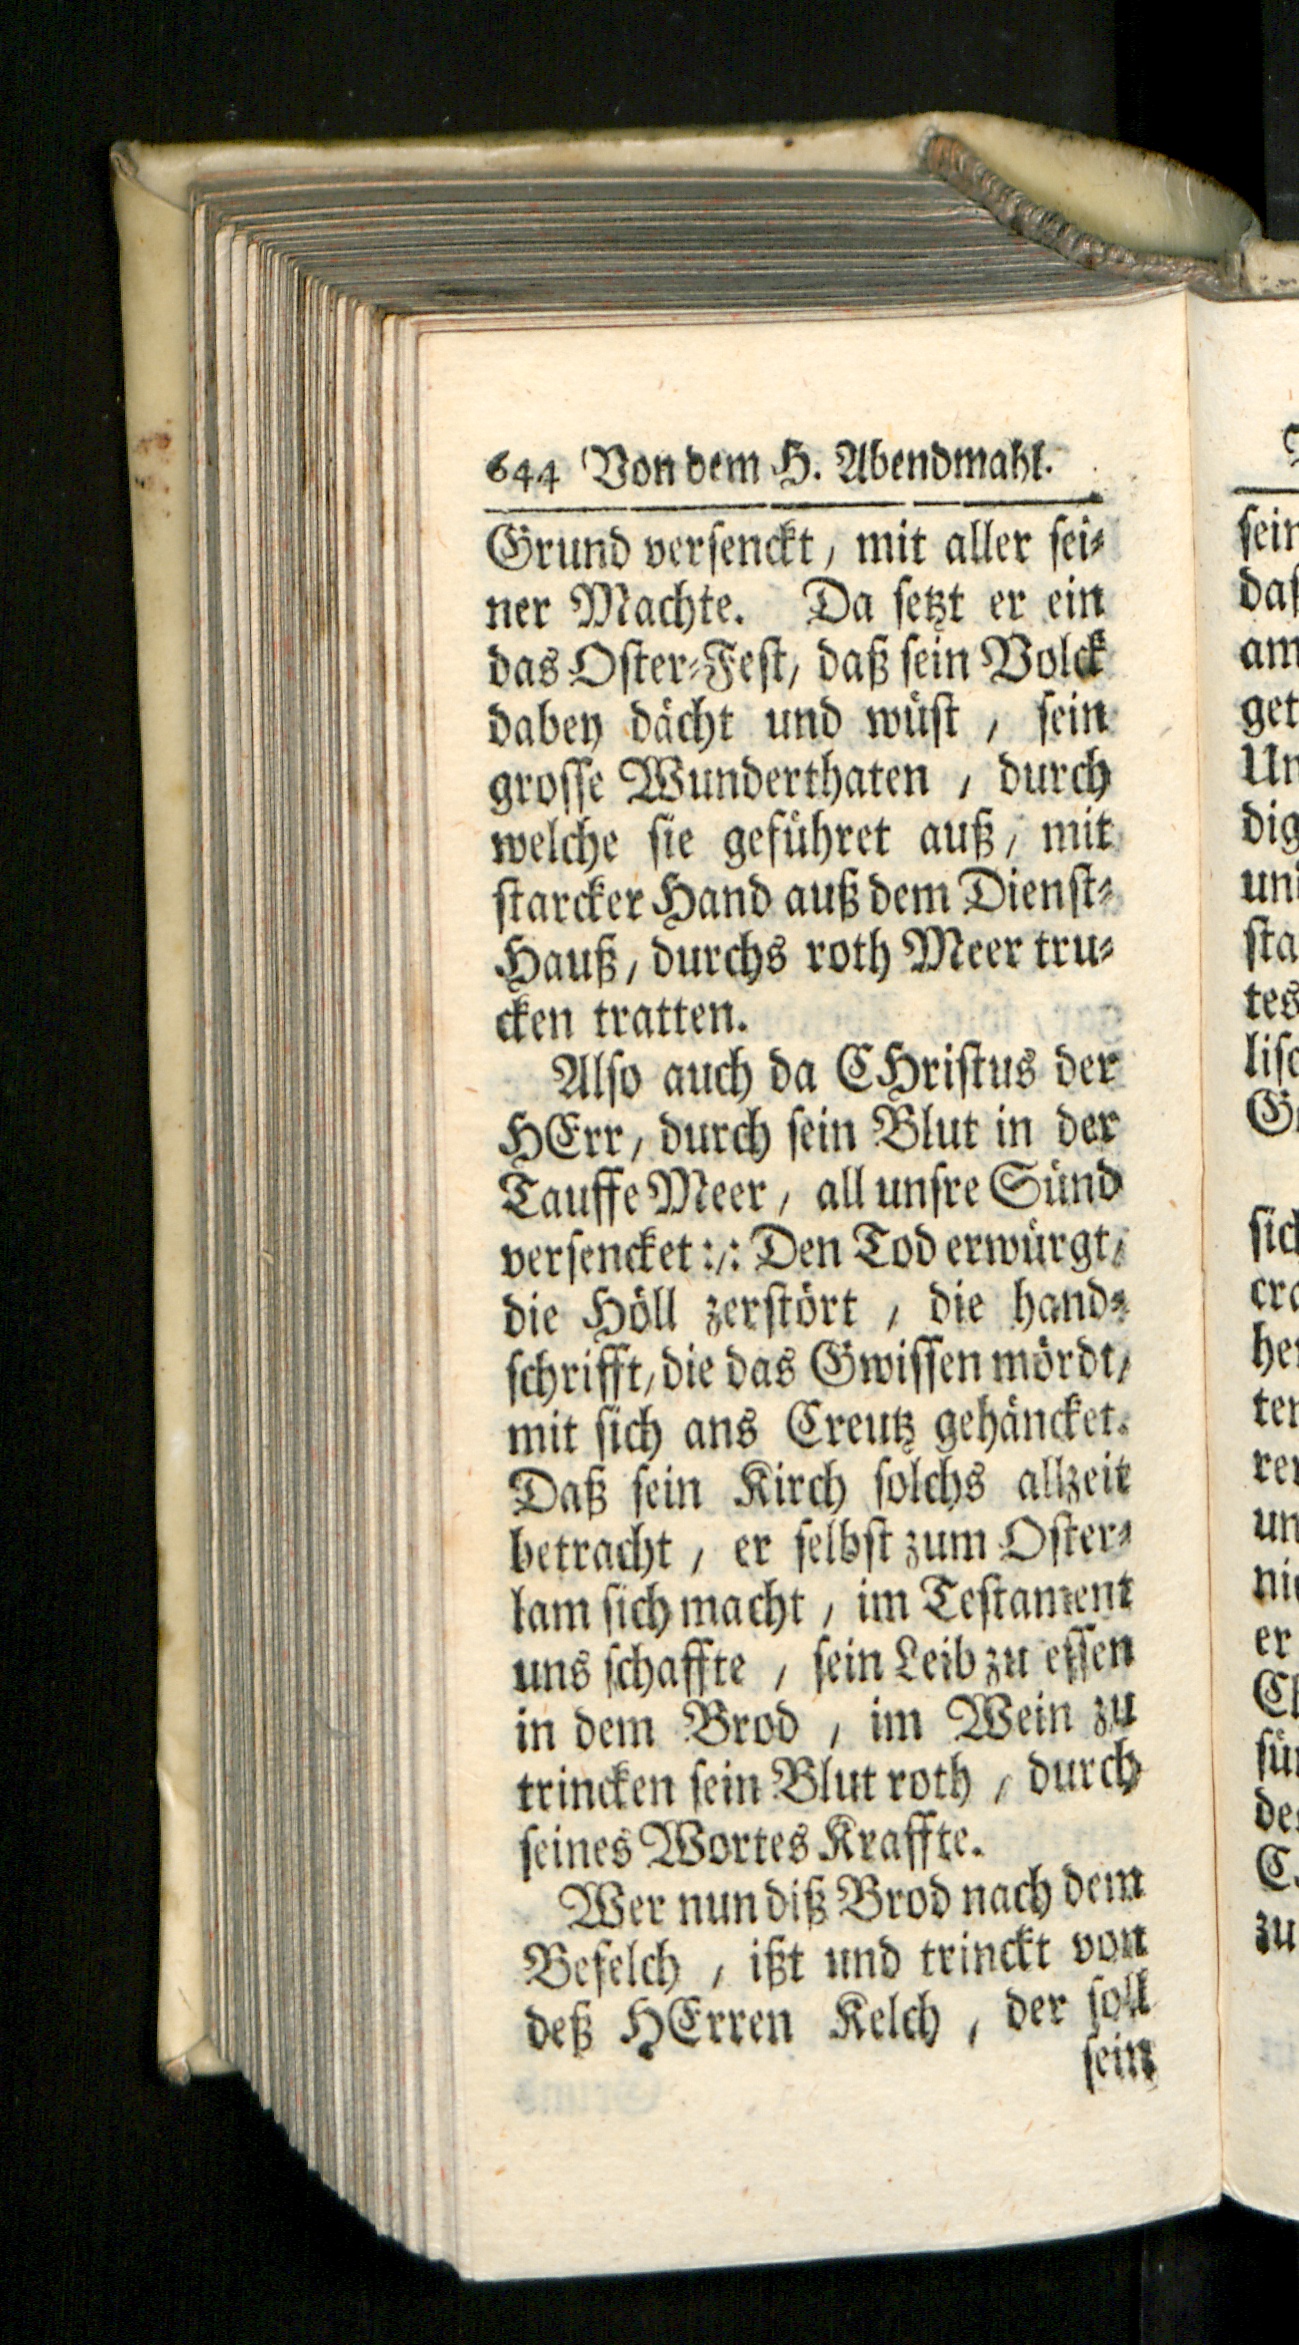 644 Von dem H. Abendmahl.
Grund versenckt, mit aller sei-
ner Machte. Da setzt er ein
das Oster-Fest, daß sein Volck
dabey dächt und wüst, sein
grosse Wunderthaten, durch
welche sie geführet auß, mit
starcker Hand auß dem Dienst-
Hauß, durchs roth Meer tru-
cken tratten.
Also auch da CHristus der
HErr, durch sein Blut in der
Tauffe Meer, all unsre Sünd
versencket :,: Den Tod erwürgt,
die Höll zerstört, die hand-
schrifft, die das Gwissen mördt,
mit sich ans Creutz gehäncket.
Daß sein Kirch solchs allzeit
betracht, er selbst zum Oster-
lam sich macht, im Testament
uns schaffte, sein Leib zu essen
in dem Brod, im Wein zu
trincken sein Blut roth, durch
seines Wortes Kraffte.
Wer nun diß Brod nach dem
Befelch, ißt und trinckt von
deß HErren Kelch, der soll
sein